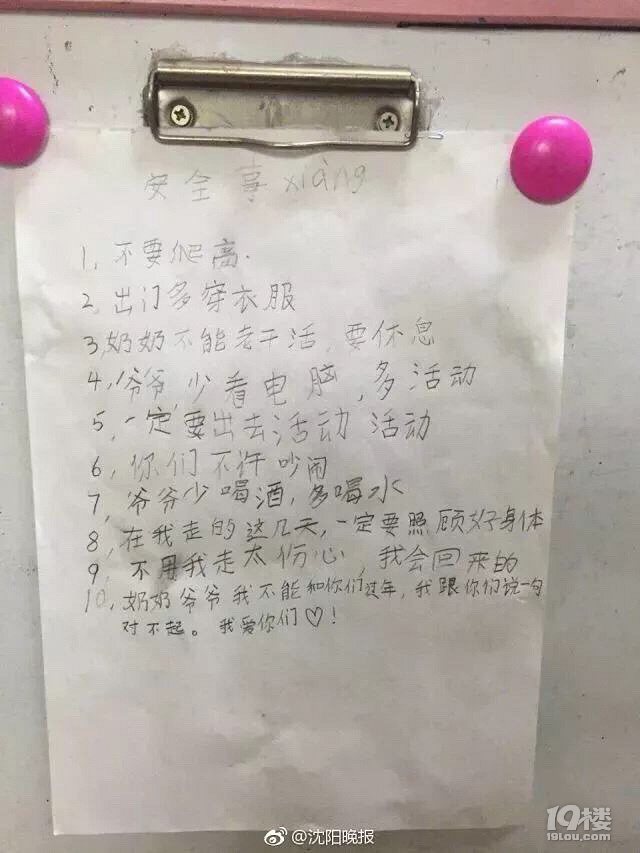 安全事xiàng
1,不要爬高.
2,出门多穿衣服
3,奶奶不能老干活,要休息
4,爷爷,少看电脑,多活动
5,一定要出去活动 活动
6,你们不许吵闹
7,爷爷少喝酒,多喝水
8,在我走的这几天,一定要照顾好身体
9,不用我走太伤心,我会回来的
10,奶奶爷爷我不能和你们过年,我跟你们说一句
对不起。我爱你们♡!
@沈阳晚报
19楼
19lou.com